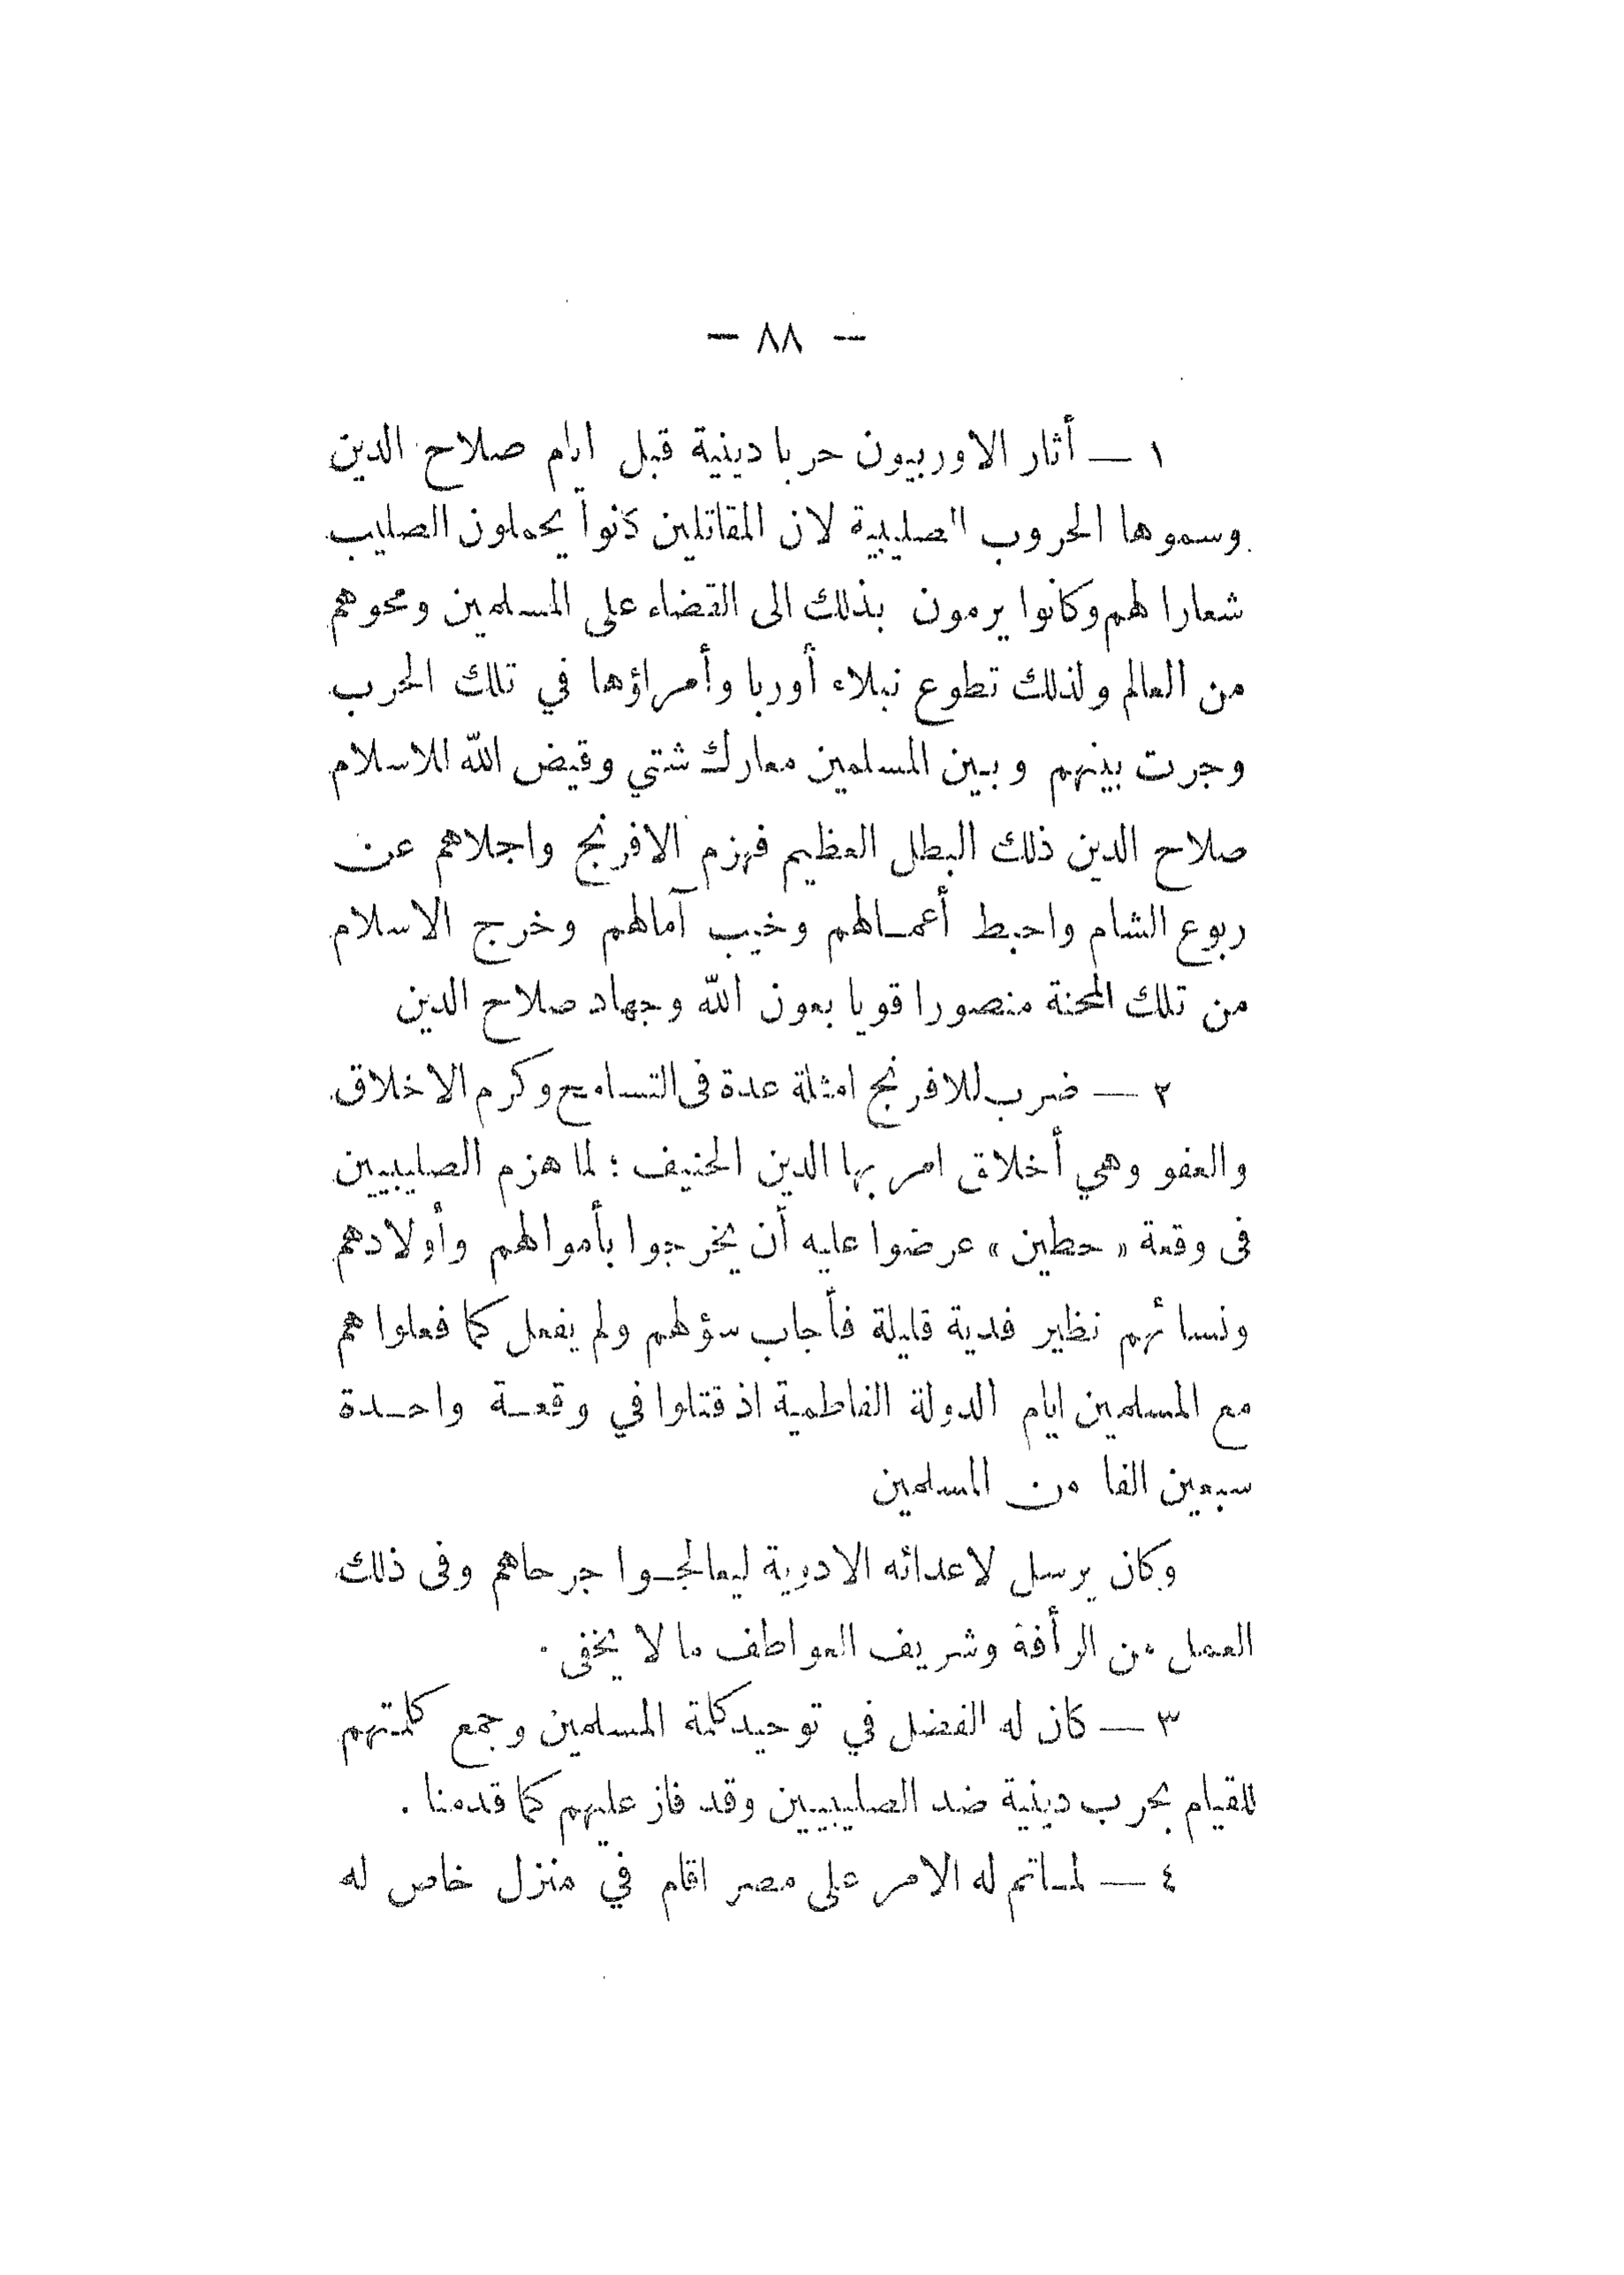 — ٨٨ —
١ — أثار الاوربيون حربا دينية قبل ايام صلاح الدين
وسموها الحروب الصليبية لان المقاتلين كانوا يحملون الصليب
شعارا لهم وكانوا يرمون بذلك الى القضاء على المسلمين ومحوهم
من العالم ولذلك تطوع نبلاء أوربا وأمراؤها في تلك الحرب
وجرت بينهم وبين المسلمين معارك شتي وقيض الله للاسلام
صلاح الدين ذلك البطل العظيم فهزم الافرنج واجلاهم عن
ربوع الشام واحبط أعمالهم وخيب آمالهم وخرج الاسلام
من تلك المحنة منصورا قويا بعون الله وجهاد صلاح الدين
٢ — ضرب للافرنج امثلة عدة فى التسامح وكرم الاخلاق
والعفو وهي أخلاق امر بها الدين الحنيف : لما هزم الصليبيين
فى وقعة « حطين » عرضوا عليه أن يخرجوا بأموالهم وأولادهم
ونسائهم نظير فدية قليلة فأجاب سؤلهم ولم يفعل كما فعلوا هم
مع المسلمين ايام الدولة الفاطمية اذ قتلوا في وقعة واحدة
سبعين الفا من المسلمين
وكان يرسل لاعدائه الادوية ليعالجوا جرحاهم وفى ذلك
العمل من الرأفة وشريف العواطف ما لا يخفى .
٣ — كان له الفضل في توحيد كلمة المسلمين وجمع كلمتهم
للقيام بحرب دينية ضد الصليبيين وقد فاز عليهم كما قدمنا .
٤ — لما تم له الامر على مصر اقام في منزل خاص له